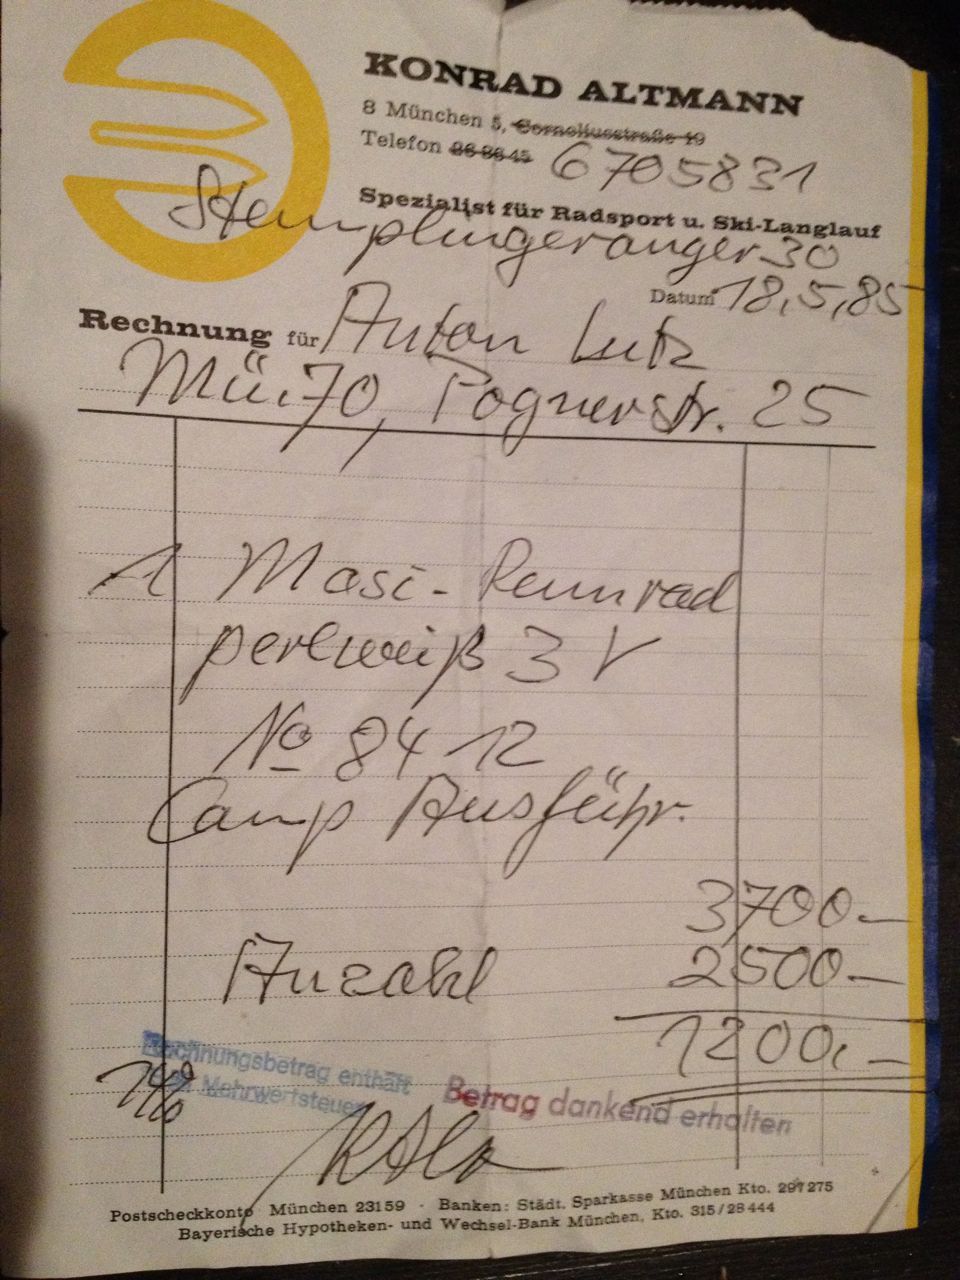 KONRAD ALTMANN
8 München 5, Corneliusstraße 19
Telefon 26 86 45 6705831
Spezialist für Radsport u. Ski-Langlauf
Stemplingeranger 30
Datum 18,5,85
Rechnung für Anton Lutz
Mü.70, Fognerstr. 25
1 Masi-Rennrad
perlweiß 3 V
No 84 12
Camp Ausführ.
3700.—
Anzahl 2500.—
1200.—
Rechnungsbetrag enthält
14% Mehrwertsteuer
Betrag dankend erhalten
Postscheckkonto München 23159 · Banken: Städt. Sparkasse München Kto. 297275
Bayerische Hypotheken- und Wechsel-Bank München, Kto. 315/28444